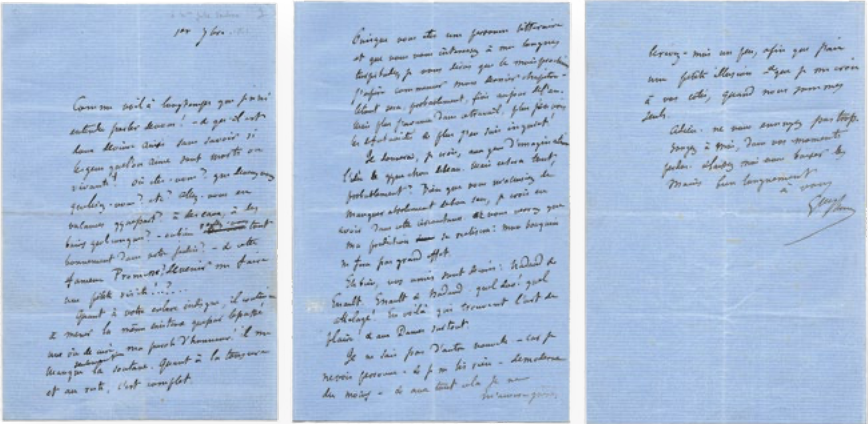 1er 7bre
Comme voilà longtemps que je n'ai
entendu parler de vous! - et que il est
doux de vivre ainsi sans savoir si
les gens qu'on aime sont morts ou
vivants! Où êtes-vous? que devenez-vous
etc? Allez-vous en
vacances quelque part? à des eaux, à des
bains quelconques? - ou bien
bonnement dans votre jardin? - et cette
fameuse Promesse! de venir me faire
une petite visite!..?...
Quant à votre esclave indigne, il continue
à mener la même existence que par le passé
ma parole d'honneur! il me
manque la soutane. Quant à la tonsure
et au reste, c'est complet.
Puisque vous êtes une personne littéraire
et que vous vous intéressez à mes longues
turpitudes, je vous dirai que le mois prochain
j'espère commencer mon dernier chapitre -
Ce sera, probablement, fini au jour de l'an.
Mais plus j'avance dans ce travail, plus j'en vois
les difficultés et plus j'en suis inquiet!
Je donnerai, je crois, aux gens d'imagination
l'idée de quelque chose de beau. Mais ce sera tout,
probablement? Bien que vous m'accusiez de
manquer absolument de bon sens, je crois en
avoir dans cette circonstance. Et vous verrez que
ma prédiction se réalisera: mon bouquin
ne fera pas grand effet.
Eh bien, vos amis sont désunis: Nadaud &
Énault. Énault & Nadaud, quel duo! quel
attelage! En voilà qui trouvent l'art de
plaire! et aux Dames surtout.
Je ne sais pas d'autre nouvelle - car je
ne vois personne - et je ne lis rien - de moderne
du moins - et avec tout cela je ne
m'ennuie guère.
Écrivez-moi un peu, afin que j'aie
une petite illusion et que je me croie
à vos côtés, quand nous sommes
seuls.
Adieu. ne vous ennuyez pas trop.
songez à moi, dans vos moments
perdus. et laissez-moi vous baiser les
mains bien longuement
à vous